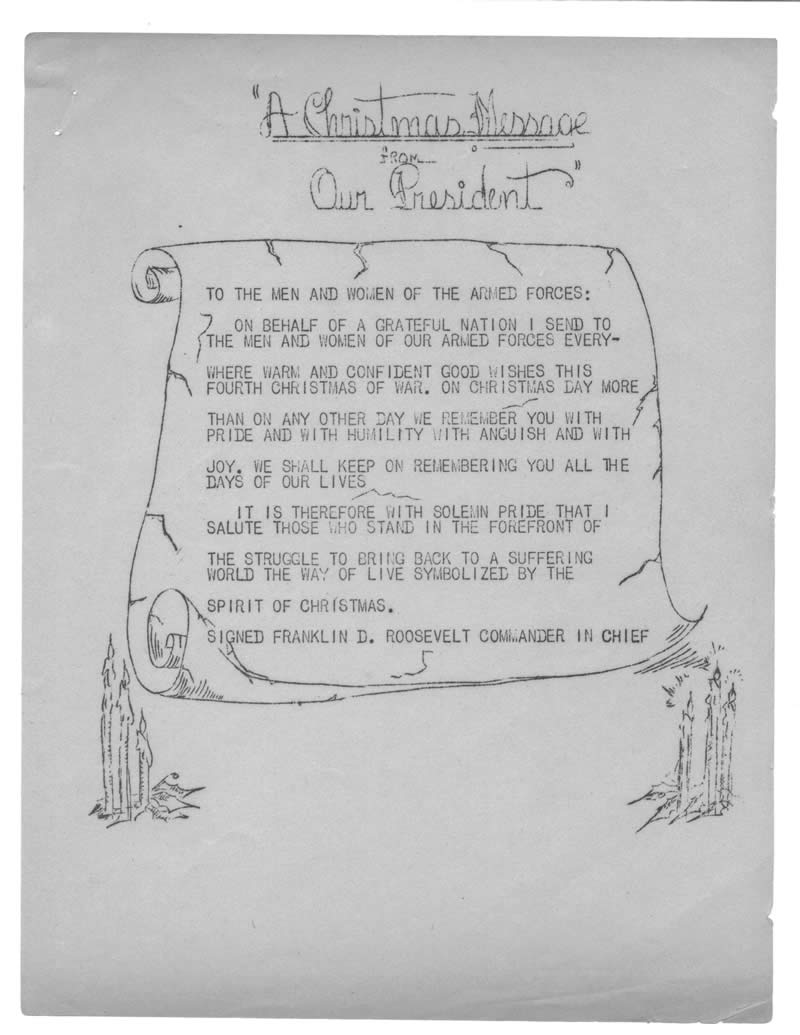 "A Christmas Message
FROM
Our President"
TO THE MEN AND WOMEN OF THE ARMED FORCES:
ON BEHALF OF A GRATEFUL NATION I SEND TO
THE MEN AND WOMEN OF OUR ARMED FORCES EVERY-
WHERE WARM AND CONFIDENT GOOD WISHES THIS
FOURTH CHRISTMAS OF WAR. ON CHRISTMAS DAY MORE
THAN ON ANY OTHER DAY WE REMEMBER YOU WITH
PRIDE AND WITH HUMILITY WITH ANGUISH AND WITH
JOY. WE SHALL KEEP ON REMEMBERING YOU ALL THE
DAYS OF OUR LIVES
IT IS THEREFORE WITH SOLEMN PRIDE THAT I
SALUTE THOSE WHO STAND IN THE FOREFRONT OF
THE STRUGGLE TO BRING BACK TO A SUFFERING
WORLD THE WAY OF LIVE SYMBOLIZED BY THE
SPIRIT OF CHRISTMAS.
SIGNED FRANKLIN D. ROOSEVELT COMMANDER IN CHIEF